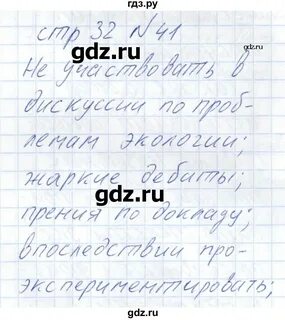 гдз.ру
стр 32 № 41
gdz.ru
Не участвовать в
дискуссии по проб-
лемам экологии;
gdz.ru
жаркие дебиты;
gdz.ru
прения по докладу;
впоследствии про-
gdz.ru
экспериментировать;